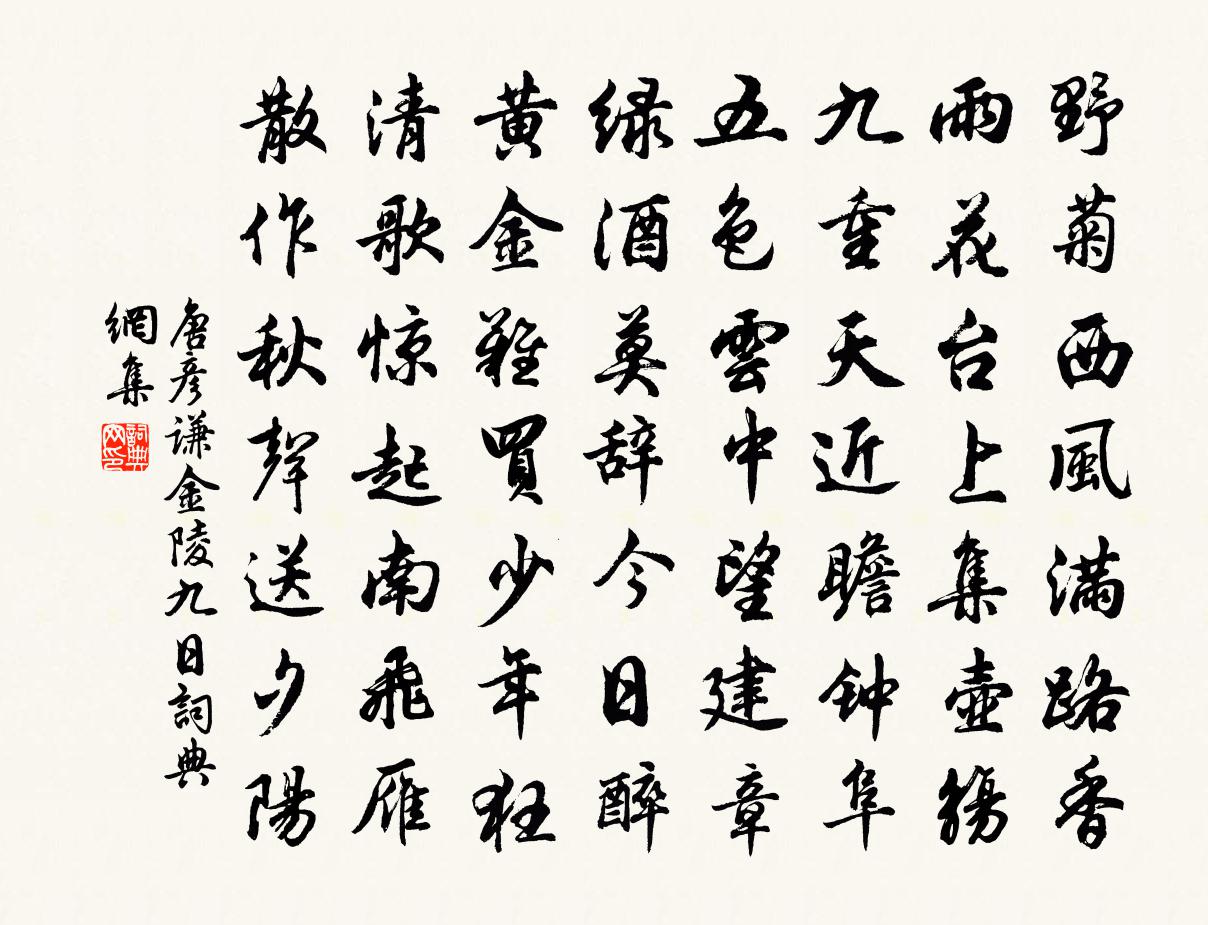 野菊西風满路香
雨花台上集壺觴
九重天近瞻钟阜
五色雲中望建章
绿酒莫辞今日醉
黄金難買少年狂
清歌惊起南飛雁
散作秋聲送夕陽
唐彦谦金陵九日詞典
網集
詞典
网印